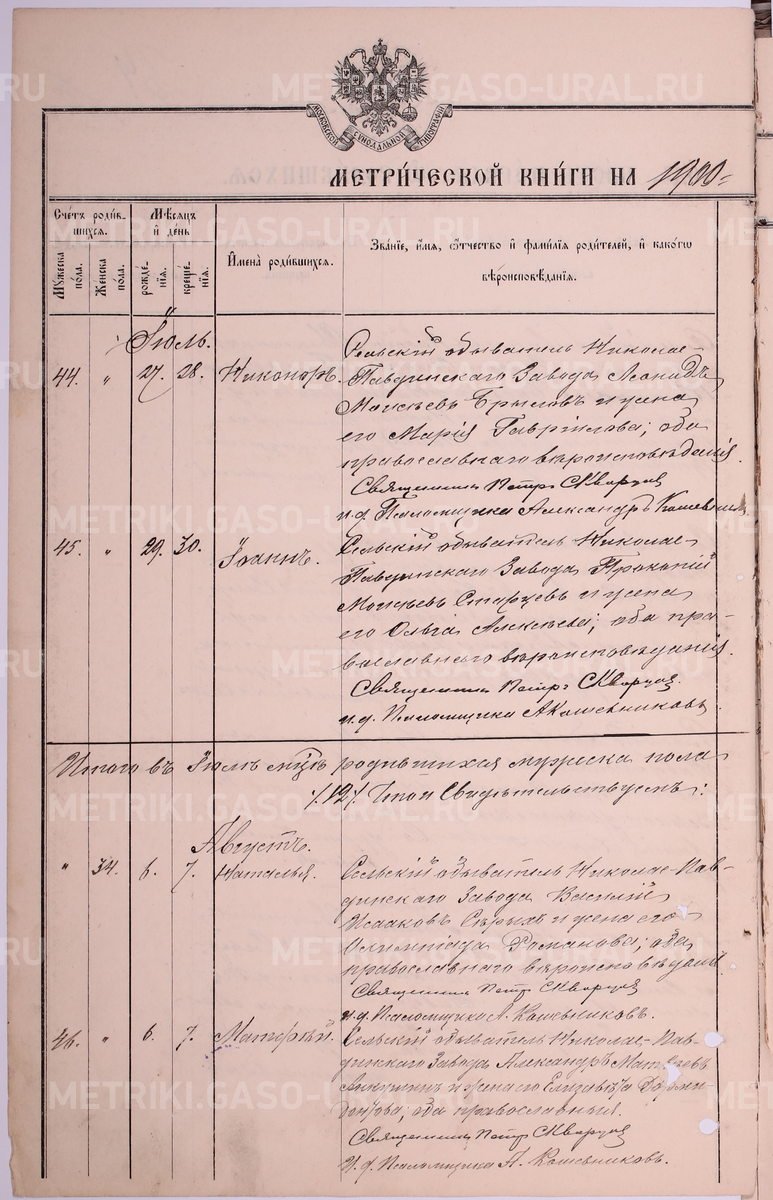 МОСКОВСКОЙ СѴНОДАЛЬНОЙ ТИПОГРАФІИ
МЕТРИ́ЧЕСКОЙ КНИ́ГИ НА 1900.
Сче́тъ роди́вшихся.
Мѣ́сяцъ и҆ де́нь
И҆мена̀ роди́вшихся.
Зва́нїе, и҆́мя, ѻ҆́тчество и҆ фами́лїя роди́телей, и҆ како́гѡ вѣроисповѣ́данїя.
Мꙋ́жеска по́ла.
Же́нска по́ла.
рожде́нїя.
креще́нїя.
Іюль.
44. " 27. 28. Никаноръ.
Сельскій обыватель Николае-
Павдинскаго Завода Леонидъ
Моисѣевъ Брыловъ и жена
его Марія Гавріилова; оба
православнаго вѣроисповѣданія.
Священникъ Петръ Скворцовъ
и. д. Псаломщика Александръ Кошевниковъ
45. " 29. 30. Іоаннъ.
Сельскій обыватель Николае-
Павдинскаго Завода Прокопій
Моисѣевъ Старцевъ и жена
его Ольга Алексѣева; оба пра-
вославнаго вѣроисповѣданія.
Священникъ Петръ Скворцовъ.
и. д. Псаломщика А Кошевниковъ.
Итого въ Іюлѣ мцѣ родившихся мужеска пола
12 Въ томъ Свидѣтельствуемъ:
Августъ.
" 34. 6. 7. Наталья.
Сельскій обыватель Николае-Пав-
динскаго Завода Василій
Исааковъ Сѣрыхъ и жена его
Олимпіада Романова; оба
православнаго вѣроисповѣданія
Священникъ Петръ Скворцовъ
и. д. Псаломщика А. Кошевниковъ.
46. " 6. 7. Матѳей.
Сельскій обыватель Николае-Пав-
динскаго Завода Александръ Матвѣевъ
и жена его Елизавета
оба православныя.
Священникъ Петръ Скворцовъ
И. д. Псаломщика А. Кошевниковъ.
METRIKI.GASO-URAL.RU